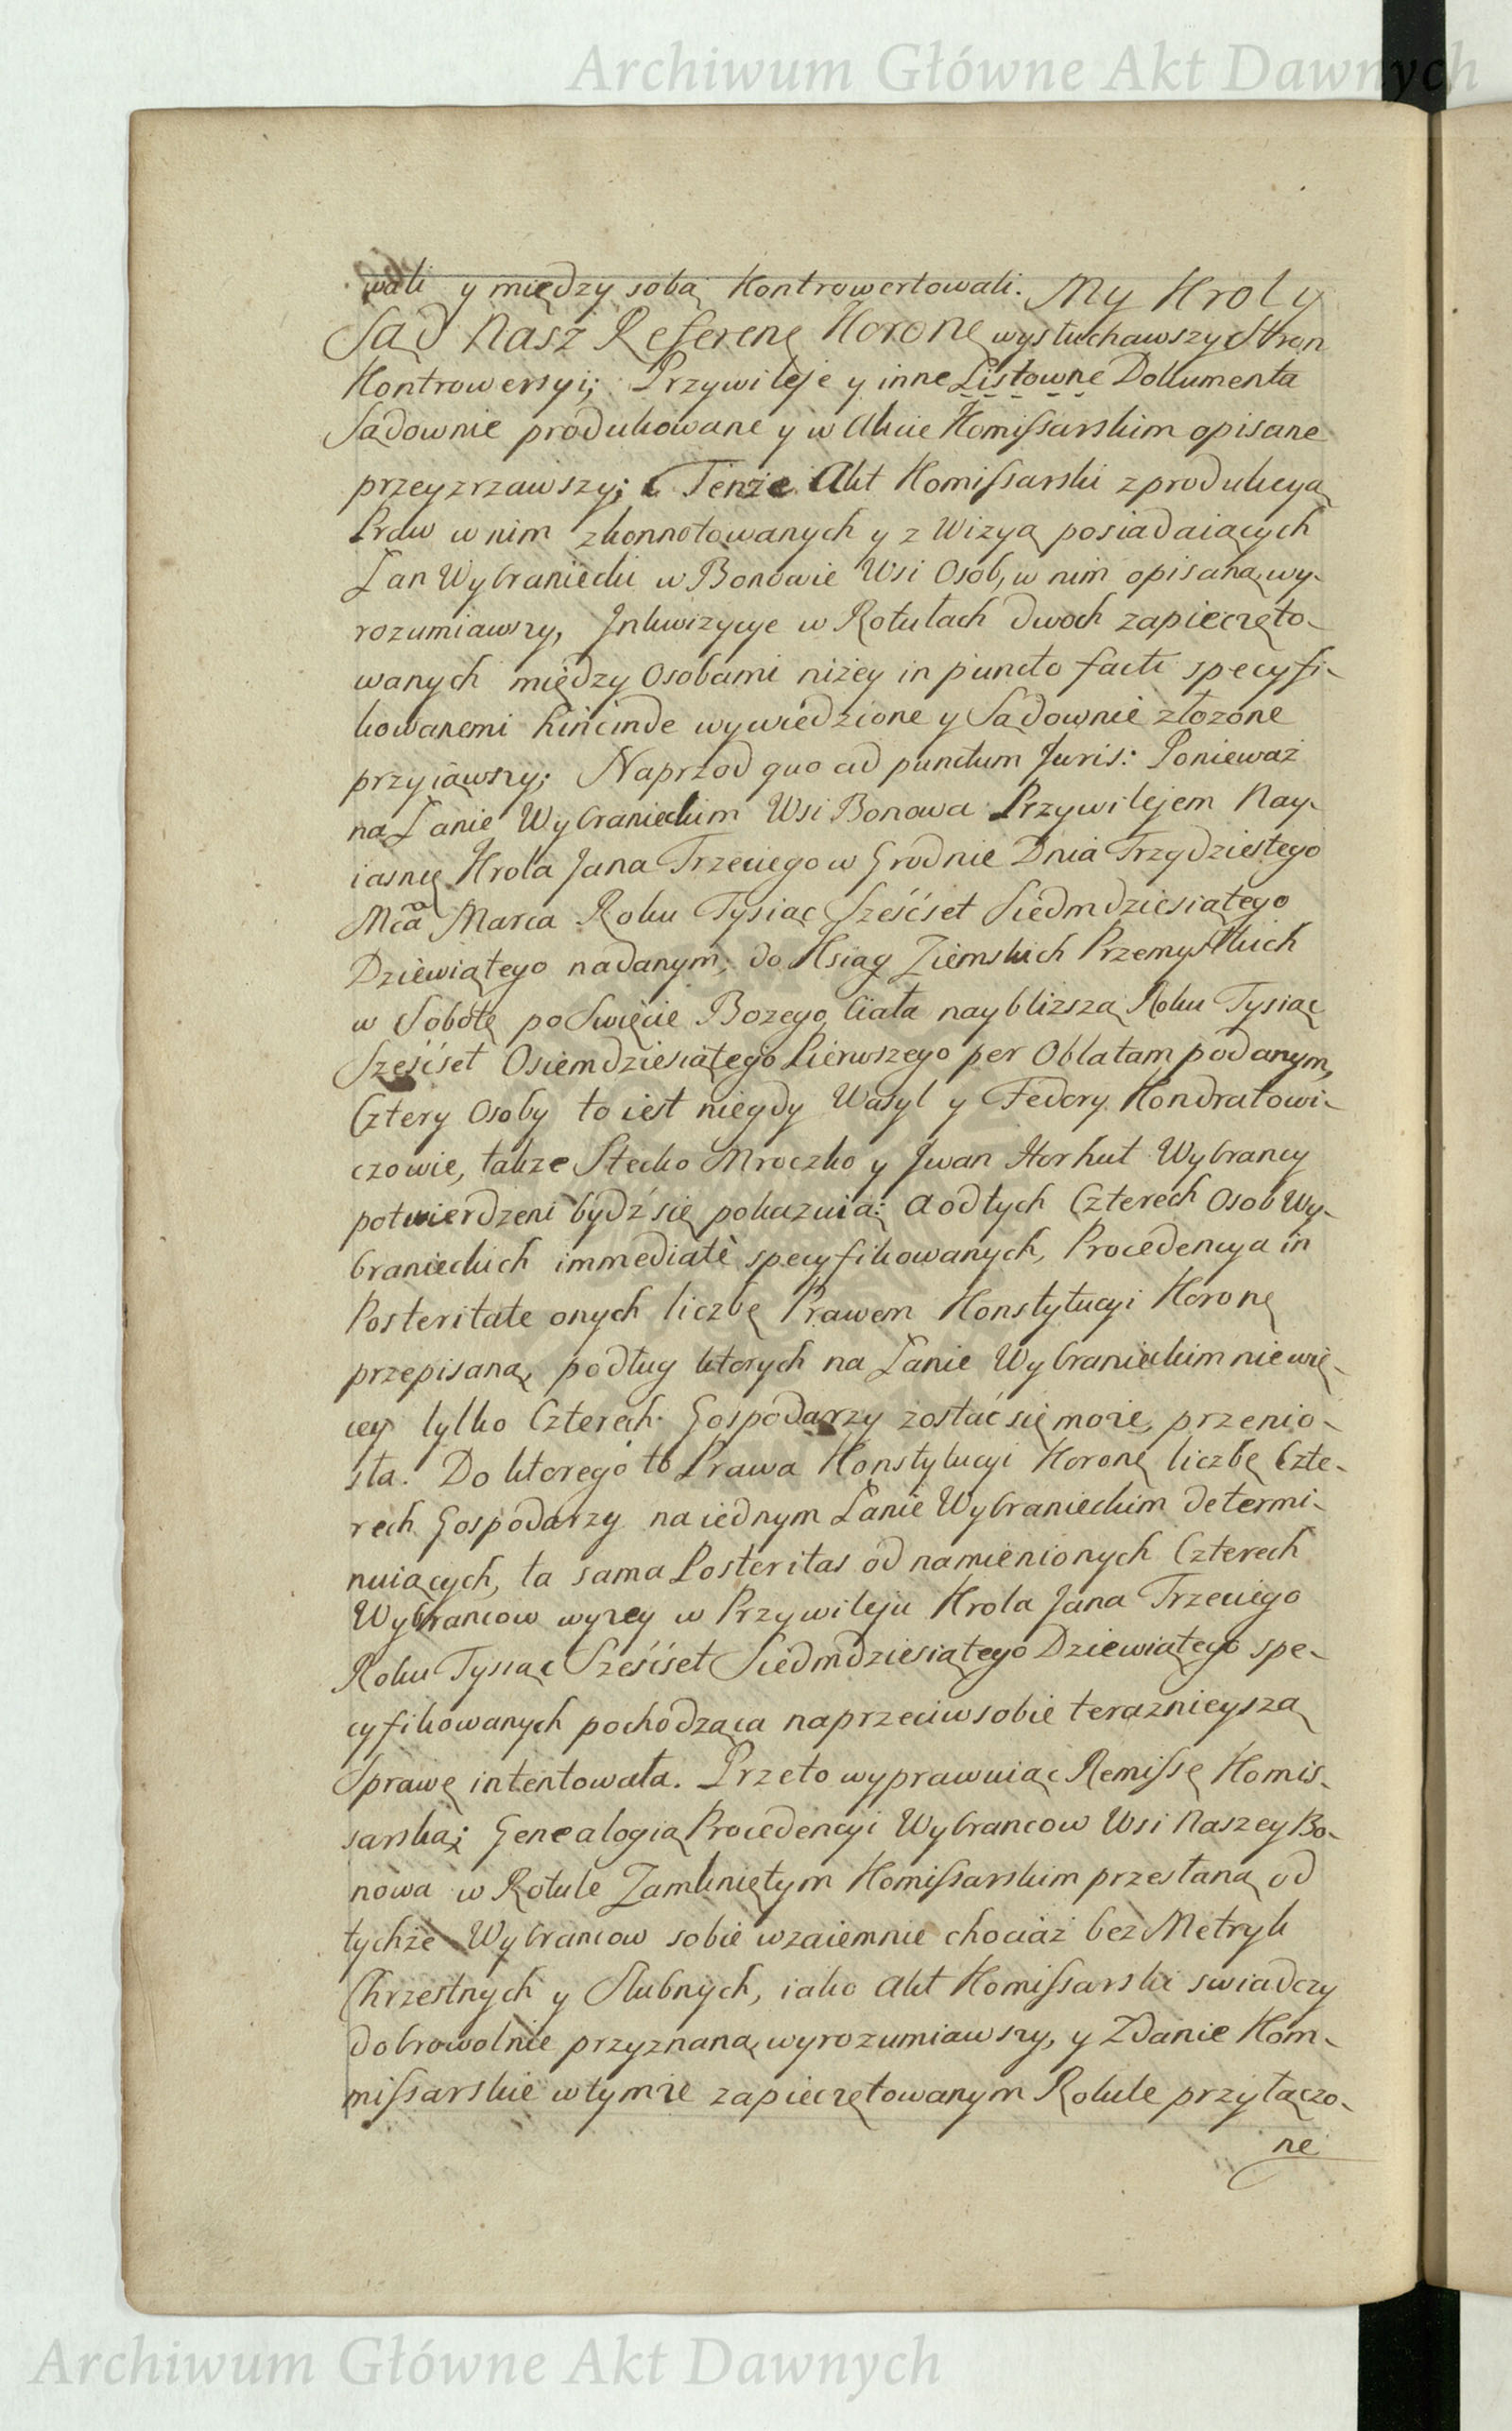 Archiwum Główne Akt Dawnych
wali y między sobą Kontrowertowali. My Krol y
Sąd Nasz Referenę Koronę wysłuchawszy Stron
Kontrowersyi; Przywileje y inne Listowne Dokumenta
Sądownie produkowane y w Akcie Komissarskim opisane
przeyzrzawszy; Tenże Akt Komissarski z produkcyą
Praw w nim zkonnotowanych y z Wizyą posiadaiących
Łan Wybraniecki w Bonowie Wsi Osob, w nim opisaną wy-
rozumiawszy, Inkwizycye w Rotułach dwoch zapieczęto-
wanych między Osobami niżey in puncto facti specyfi-
kowanemi hincinde wywiedzione y Sądownie złożone
przyiąwszy; Naprzod quo ad punctum Juris: Ponieważ
na Łanie Wybranieckim Wsi Bonowa Przywilejem Nay-
iasnię Krola Jana Trzeciego w Grodnie Dnia Trzydziestego
Mca Marca Roku Tysiąc Sześćset Siedmdziesiątego
Dziewiątego nadanym, do Ksiąg Ziemskich Przemyskich
w Sobotę po Swięcie Bozego Ciała naybliższą Roku Tysiąc
Sześćset Osiemdziesiątego Pierwszego per Oblatam podanym,
Cztery Osoby to iest niegdy Wasyl y Fedory Kondratowi-
czowie, także Stecko Mroczko y Jwan Horhut Wybrancy
potwierdzeni bydź się pokazuią: a od tych Czterech Osob Wy-
branieckich immediatè specyfikowanych, Procedencya in
Posteritate onych liczbę Prawem Konstytucyi Koronę
przepisaną, podług ktorych na Łanie Wybranieckim nie wię-
cey tylko Czterech Gospodarzy zostać się może, przenio-
sła. Do ktorego to Prawa Konstytucyi Koronę liczbę Czte-
rech Gospodarzy na iednym Łanie Wybranieckim determi-
nuiących, ta sama Posteritas od namienionych Czterech
Wybrancow wyżey w Przywileju Krola Jana Trzeciego
Roku Tysiąc Sześćset Siedmdziesiątego Dziewiątego spe-
cyfikowanych pochodząca naprzeciw sobie teraznieyszą
Sprawę intentowała. Przeto wyprawuiąc Remissę Komis-
sarską; Genealogią Procedencyi Wybrancow Wsi Naszey Bo-
nowa w Rotule Zamkniętym Komissarskim przesłaną od
tychże Wybrancow sobie wzaiemnie chociaż bez Metryk
Chrzestnych y Slubnych, iako Akt Komissarski swiadczy
dobrowolnie przyznaną wyrozumiawszy, y Zdanie Kom-
missarskie w tymże zapieczętowanym Rotule przyłączo-
ne
Archiwum Główne Akt Dawnych